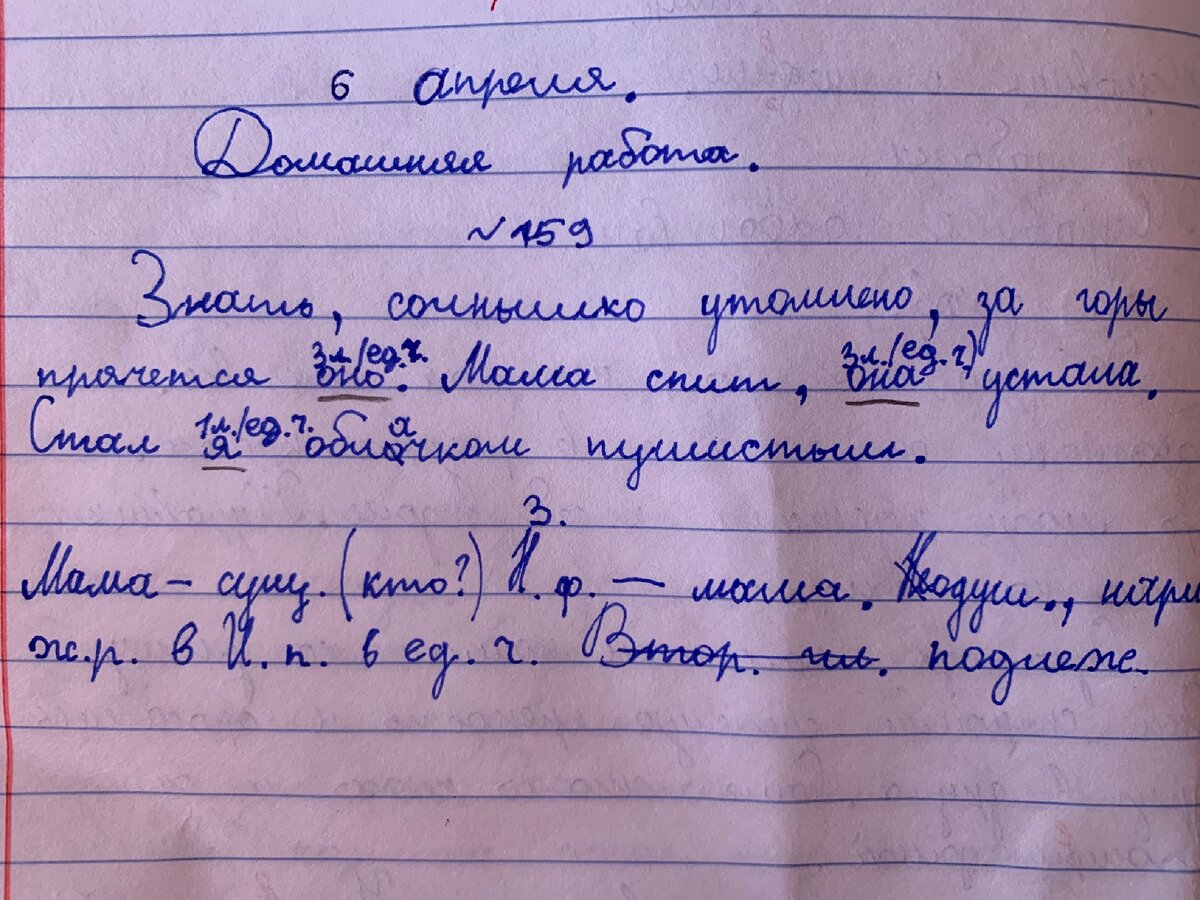 6 апреля.
Домашняя работа.
№159
Знать, солнышко утомлено, за горы
3л./ед.ч. 3л./(ед.ч)
прячется оно. Мама спит, она устала.
1л./ед.ч. а
Стал я облачком пушистым.
3.
Мама – сущ. (кто?) Н.ф. — мама. одуш., нари
ж.р. в И.п. в ед.ч. Втор. чл. подлеж.